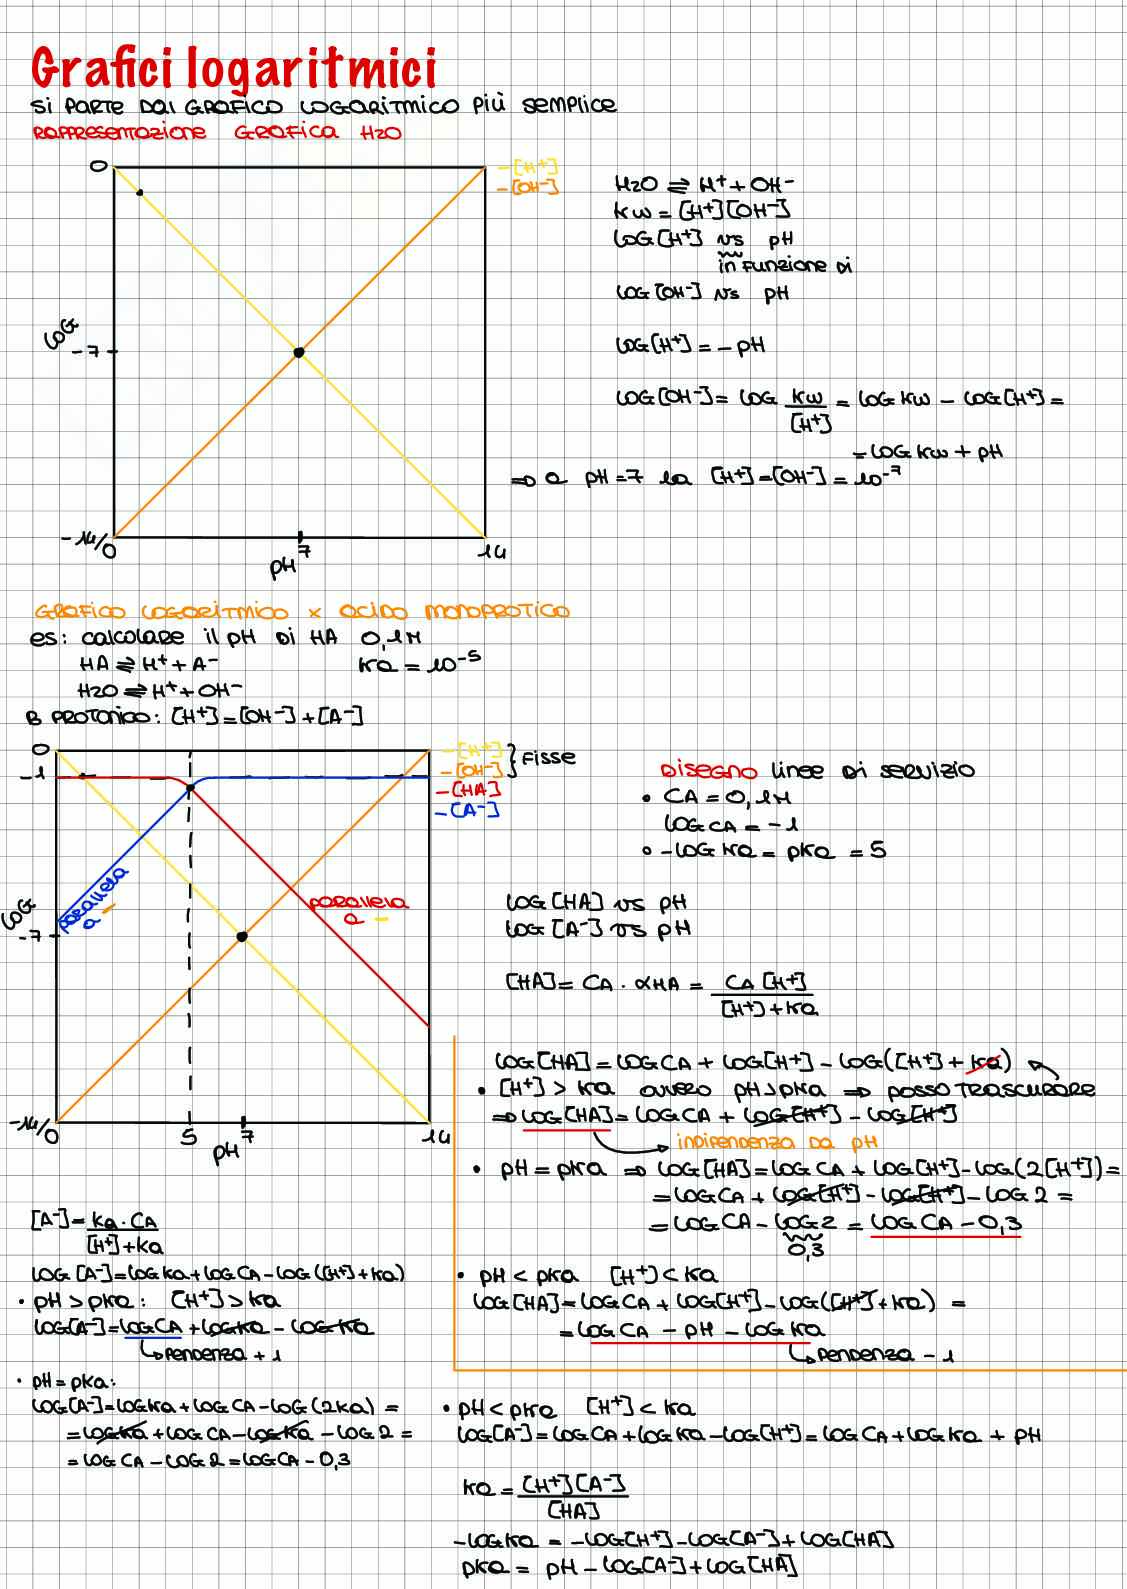 Grafici logaritmici
SI PARTE DAL GRAFICO LOGARITMICO PIÙ SEMPLICE
RAPPRESENTAZIONE GRAFICA H2O
0
-[H+]
-[OH-]
LOG
-7
-14/0
7
14
pH
H2O ⇌ H+ + OH-
KW = [H+][OH-]
LOG[H+] vs pH
in FUNZIONE DI
LOG[OH-] vs pH
LOG[H+] = -pH
LOG[OH-] = LOG KW/[H+] = LOG KW - LOG[H+] =
= LOG KW + pH
⇒ a pH = 7 la [H+] = [OH-] = 10-7
GRAFICO LOGARITMICO x ACIDO MONOPROTICO
es: CALCOLARE IL pH DI HA 0,1M
HA ⇌ H+ + A-
Ka = 10-5
H2O ⇌ H+ + OH-
B PROTONICO: [H+] = [OH-] + [A-]
0
-1
-[H+]
-[OH-]
} FISSE
-[HA]
-[A-]
parallela a -
parallela a -
LOG
-7
-14/0
5
7
14
pH
DISEGNO LINEE DI SERVIZIO
• CA = 0,1M
LOG CA = -1
• -LOG Ka = pKa = 5
LOG [HA] vs pH
LOG [A-] vs pH
[HA] = CA · αHA = CA [H+]/[H+] + Ka
LOG[HA] = LOG CA + LOG[H+] - LOG([H+] + Ka)
• [H+] > Ka ovvero pH > pKa ⇒ POSSO TRASCURARE
⇒ LOG[HA] = LOG CA + LOG[H+] - LOG[H+]
INDIPENDENZA DA pH
• pH = pKa ⇒ LOG[HA] = LOG CA + LOG[H+] - LOG(2[H+]) =
= LOG CA + LOG[H+] - LOG[H+] - LOG 2 =
= LOG CA - LOG 2 = LOG CA - 0,3
0,3
• pH < pKa [H+] < Ka
LOG[HA] = LOG CA + LOG[H+] - LOG([H+] + Ka) =
= LOG CA - pH - LOG Ka
PENDENZA -1
[A-] = Ka · CA/[H+] + Ka
LOG[A-] = LOG Ka + LOG CA - LOG([H+] + Ka)
• pH > pKa: [H+] > Ka
LOG[A-] = LOG CA + LOG Ka - LOG Ka
PENDENZA +1
• pH = pKa:
LOG[A-] = LOG Ka + LOG CA - LOG(2Ka) =
= LOG Ka + LOG CA - LOG Ka - LOG 2 =
= LOG CA - LOG 2 = LOG CA - 0,3
• pH < pKa [H+] < Ka
LOG[A-] = LOG CA + LOG Ka - LOG[H+] = LOG CA + LOG Ka + pH
Ka = [H+][A-]/[HA]
-LOG Ka = -LOG[H+] - LOG[A-] + LOG[HA]
pKa = pH - LOG[A-] + LOG[HA]